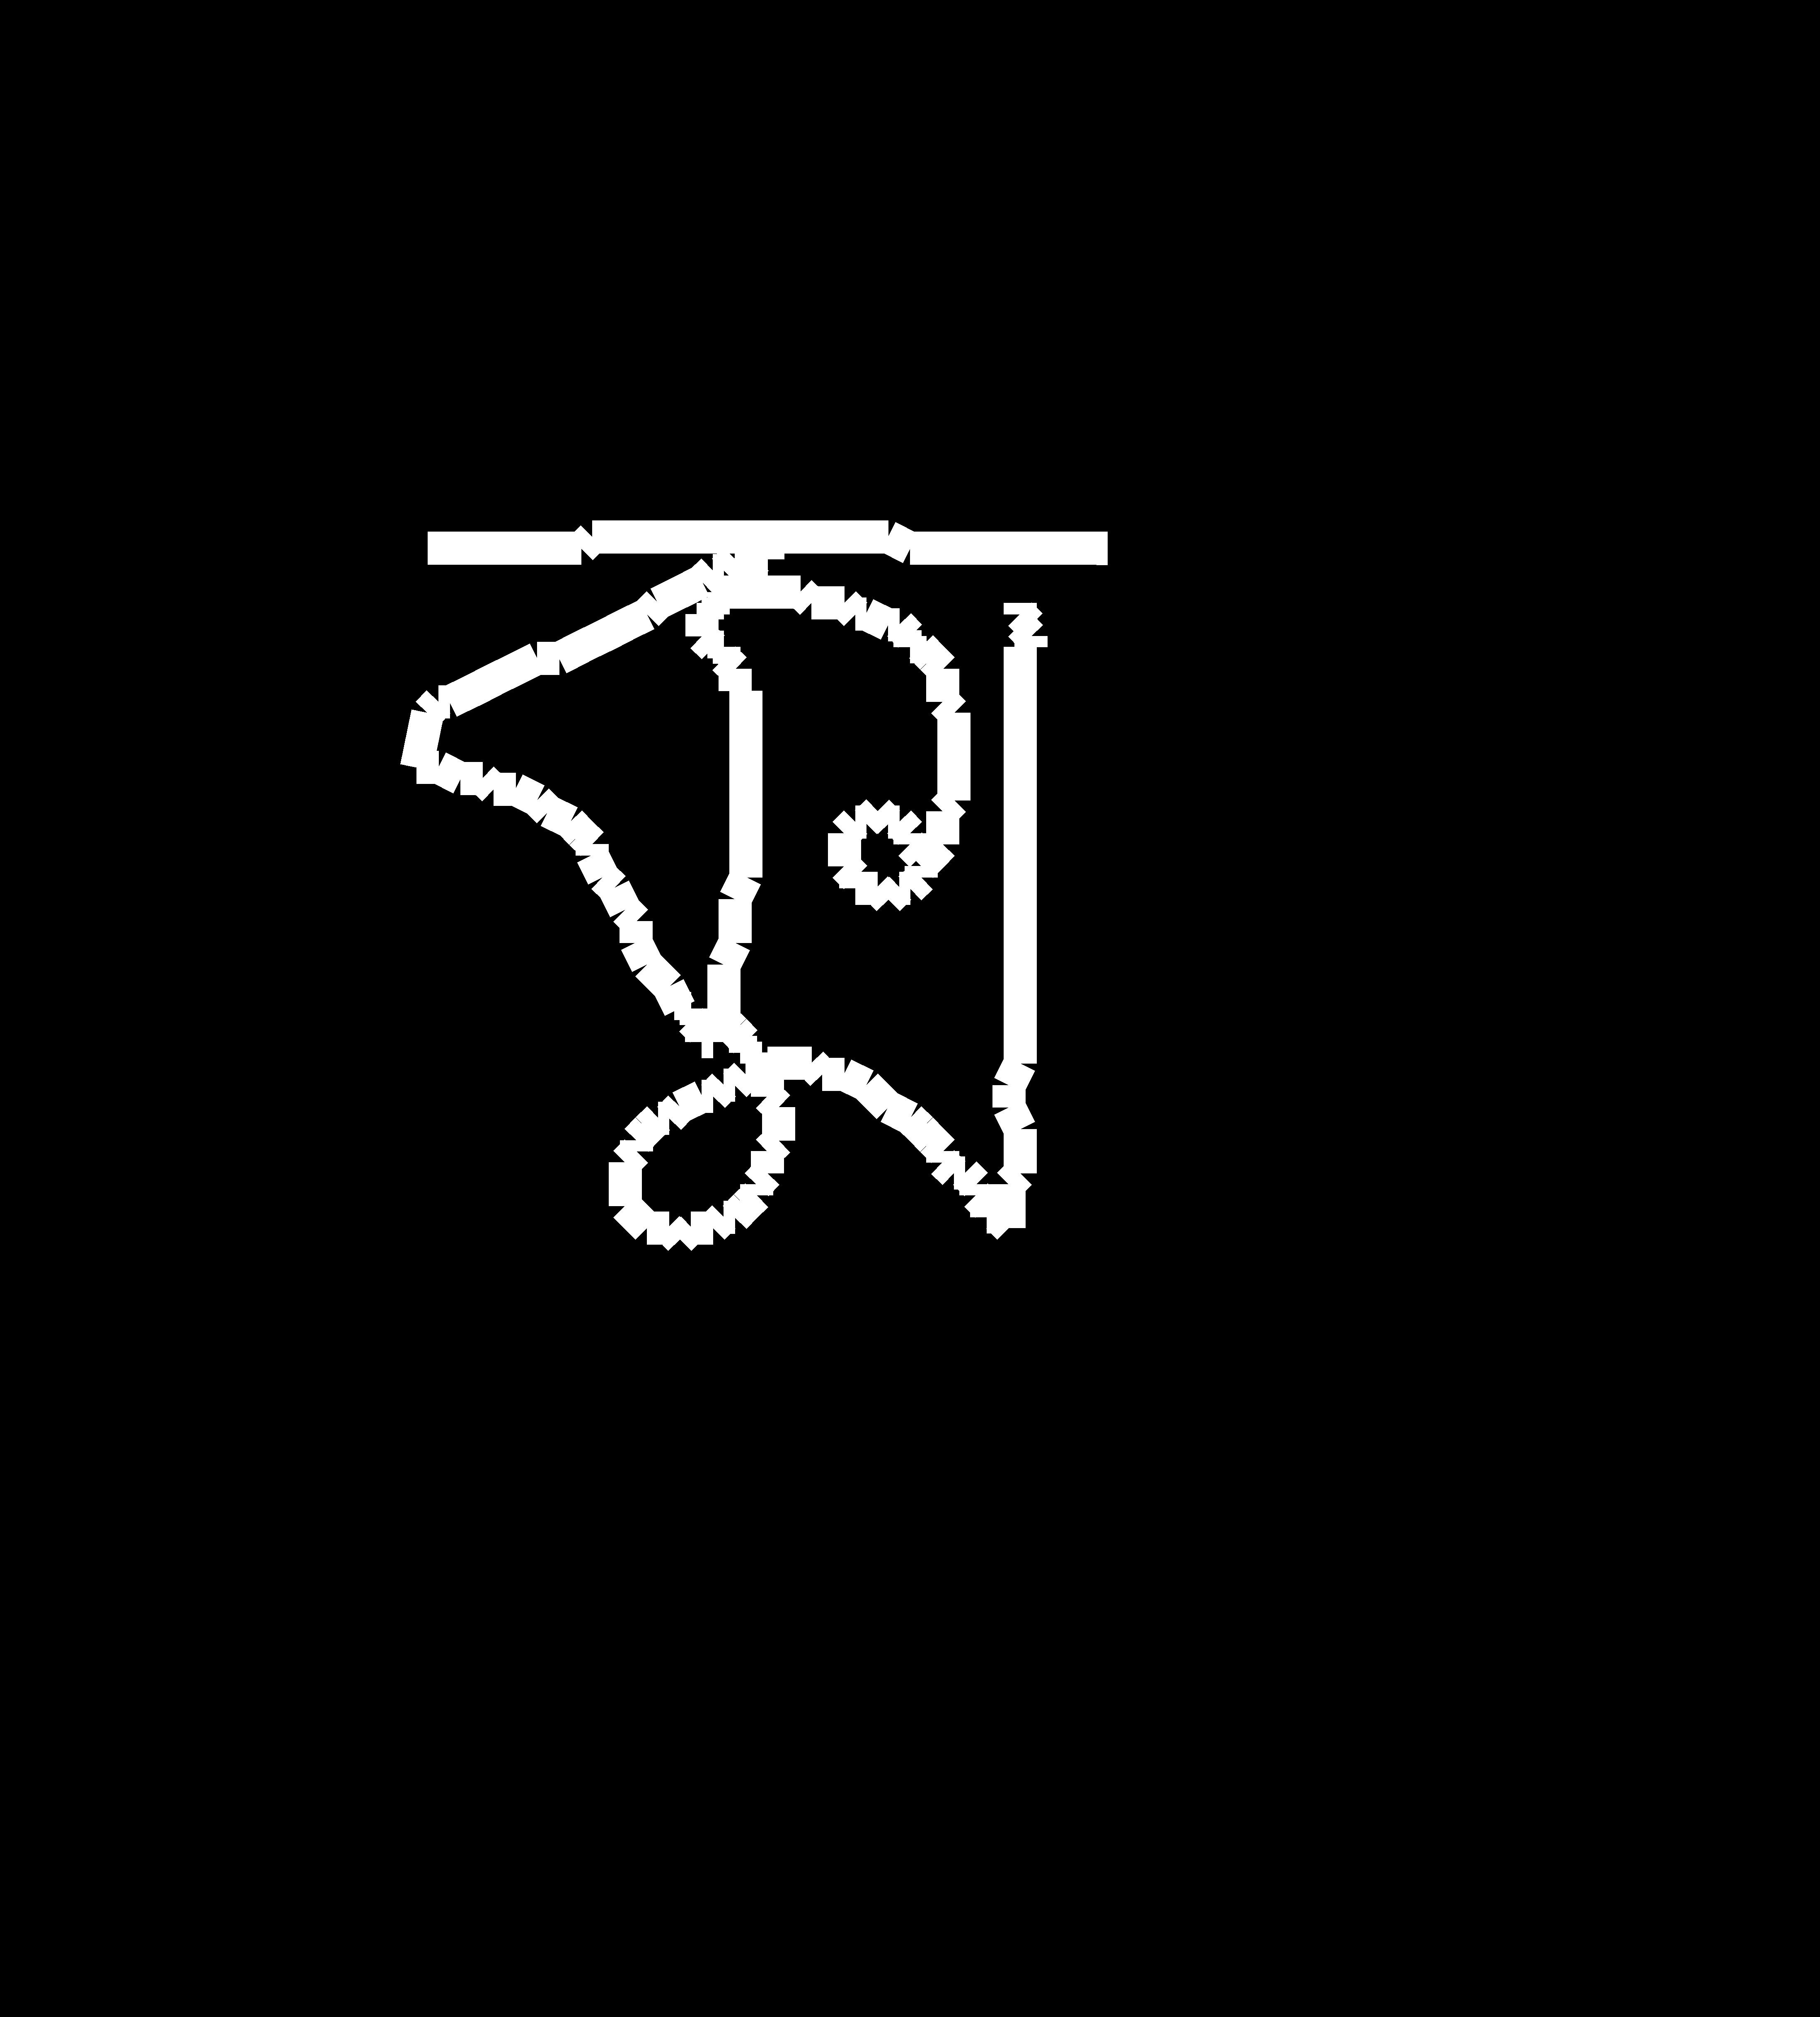 ক্ষ